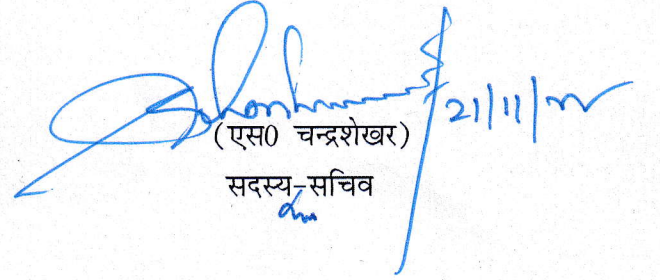 21/11/
(एस0 चन्द्रशेखर)
सदस्य-सचिव